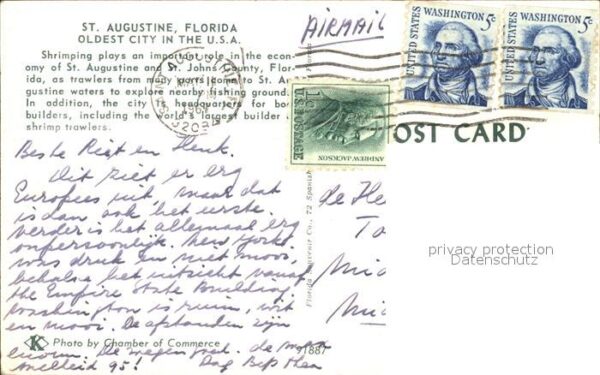 ST. AUGUSTINE, FLORIDA
OLDEST CITY IN THE U.S.A.
Shrimping plays an important role in the econ-
omy of St. Augustine and St. Johns County, Flor-
ida, as trawlers from many ports come to St. Au
gustine waters to explore nearby fishing ground
In addition, the city is headquarter for boa
builders, including the world's largest builder
shrimp trawlers.
AIRMAIL
UNITED STATES WASHINGTON 5¢
UNITED STATES WASHINGTON 5¢
1¢ U.S. POSTAGE
ANDREW JACKSON
OST CARD
Beste Riet en Henk.
Dit ziet er erg
Europees uit, maar dat
is dan ook het eerste.
Verder is het allemaal erg
onpersoonlijk. New York
was druk en niet mooi,
behalve het uitzicht vanaf
the Empire State Building
Washington is ruim, wit
en mooi. De afstanden zijn
enorm. De wegen goed. de max
snelheid 95! Dag
de He
To
privacy protection
Datenschutz
K Photo by Chamber of Commerce
91887
Florida Souvenir Co., 72 Spanish